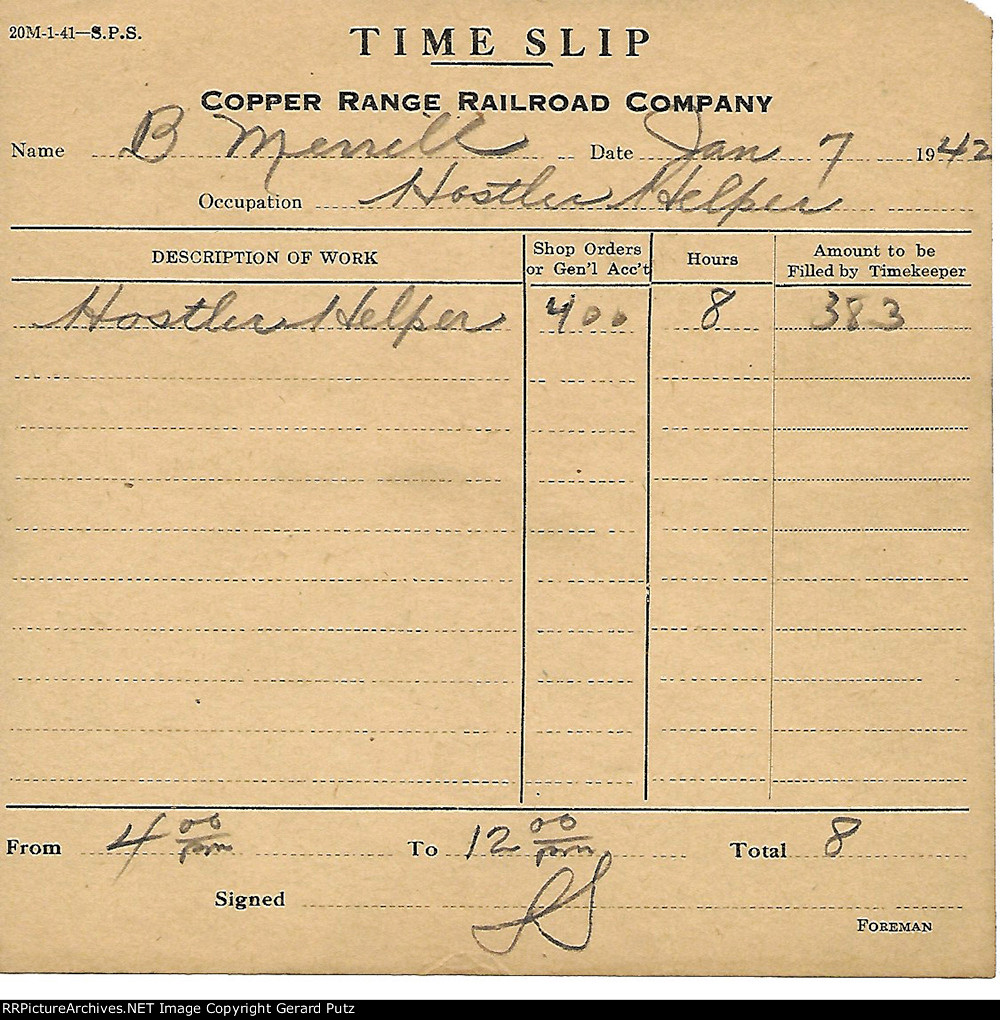 20M-1-41—S.P.S.
TIME SLIP
COPPER RANGE RAILROAD COMPANY
Name B Merrill Date Jan 7 1942
Occupation Hostler Helper
DESCRIPTION OF WORK Shop Orders or Gen'l Acc't Hours Amount to be Filled by Timekeeper
Hostler Helper 400 8 383
From 4 00 pm To 12 00 pm Total 8
Signed
FOREMAN
RRPictureArchives.NET Image Copyright Gerard Putz